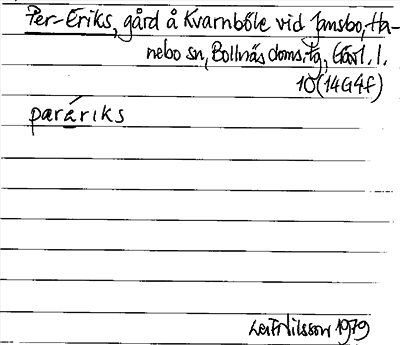 Per-Eriks, gård å Kvarnböle vid Jamsbo, Ha-
nebo sn, Bollnäs doms. tg, Gävl. l.
10 (14G4f)
paráriks
Leif Nilsson 1979